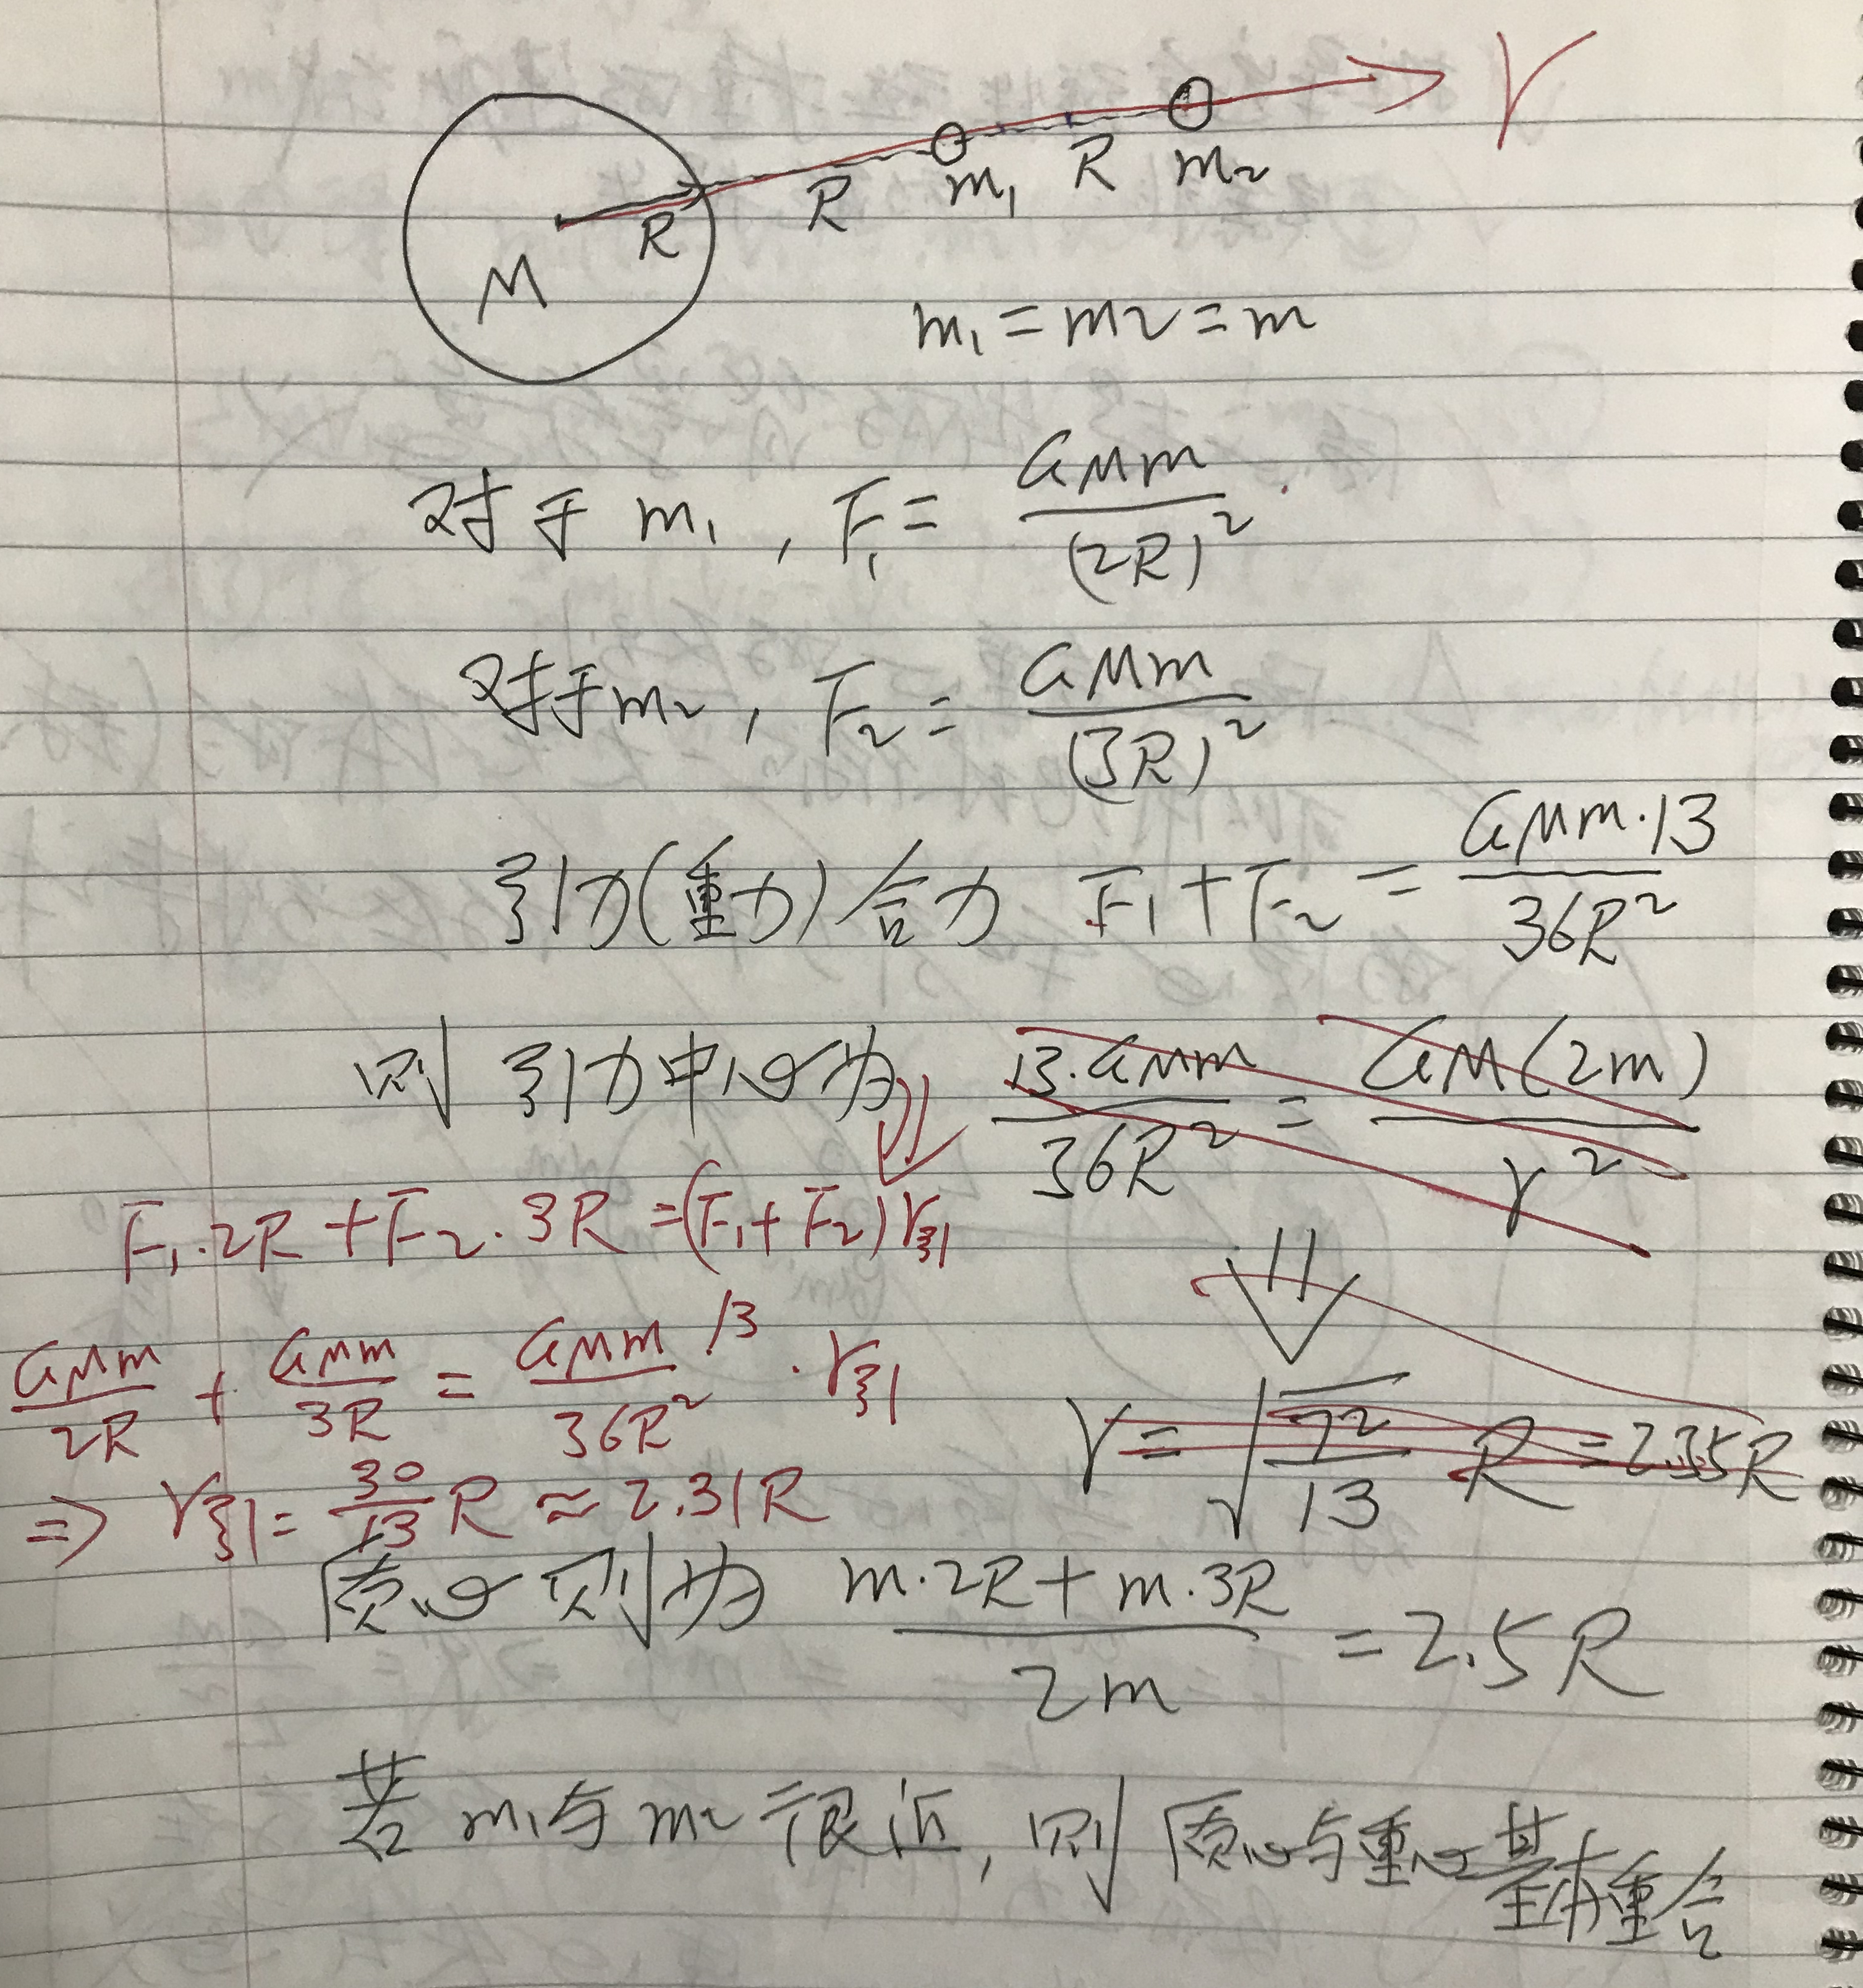 r
M R R m₁ R m₂
m₁ = m₂ = m
对于 m₁ , F₁ = GMm / (2R)²
对于 m₂ , F₂ = GMm / (3R)²
引力(重力)合力 F₁ + F₂ = GMm·13 / 36R²
则 引力中心为 13·GMm / 36R² = GM(2m) / r²
F₁·2R + F₂·3R = (F₁ + F₂) r引
GMm / 2R + GMm / 3R = GMm 13 / 36R² · r引
r = √(72 / 13) R = 2.35R
⇒ r引 = 30 / 13 R ≈ 2.31R
质心则为 m·2R + m·3R / 2m = 2.5R
若 m₁与 m₂ 很近, 则质心与重心基本重合